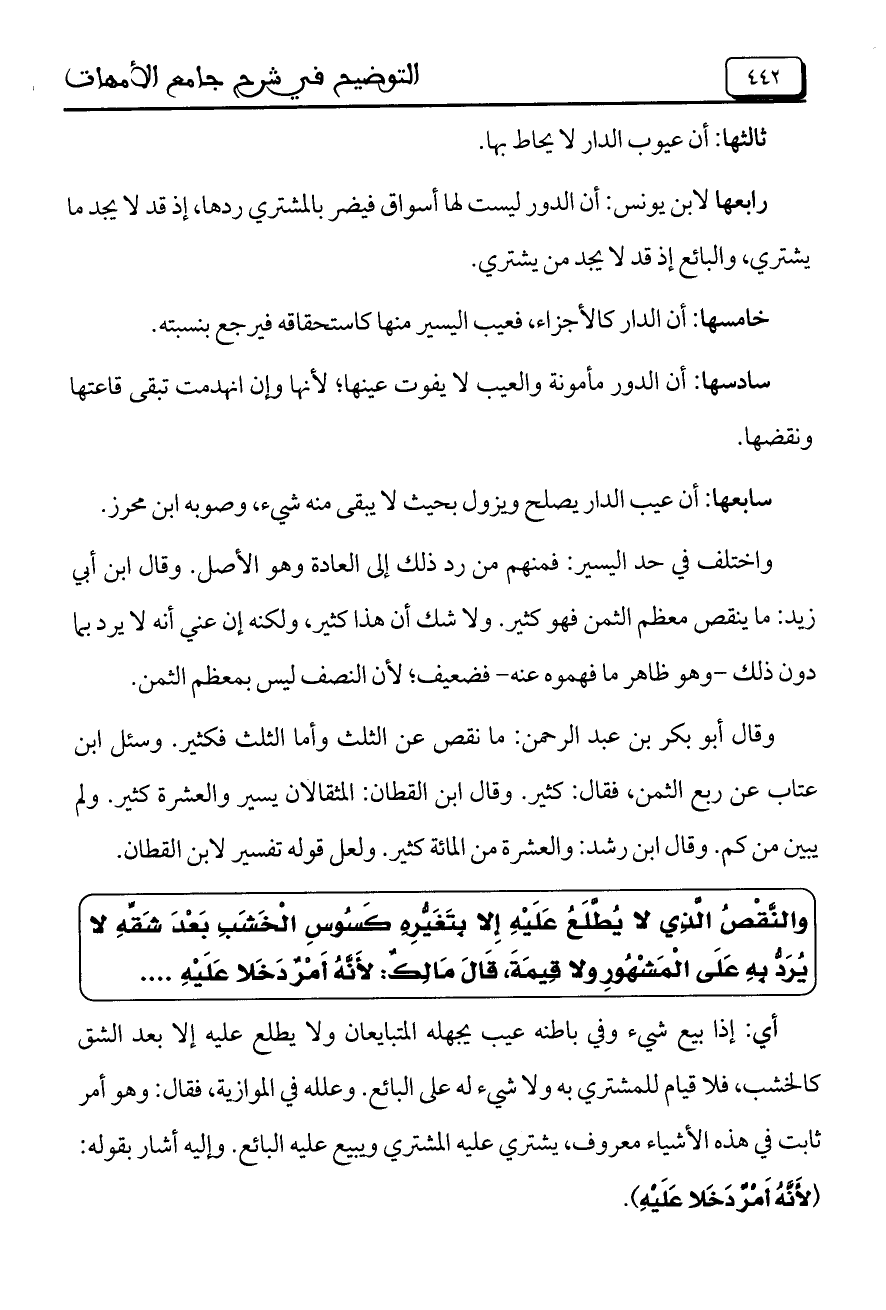 ٤٤٢
التوضيح في شرح جامع الأمهات
ثالثها: أن عيوب الدار لا يحاط بها.
رابعها لابن يونس: أن الدور ليست لها أسواق فيضر بالمشتري ردها، إذ قد لا يجد ما
يشتري، والبائع إذ قد لا يجد من يشتري.
خامسها: أن الدار كالأجزاء، فعيب اليسير منها كاستحقاقه فيرجع بنسبته.
سادسها: أن الدور مأمونة والعيب لا يفوت عينها؛ لأنها وإن انهدمت تبقى قاعتها
ونقضها.
سابعها: أن عيب الدار يصلح ويزول بحيث لا يبقى منه شيء، وصوبه ابن محرز.
واختلف في حد اليسير: فمنهم من رد ذلك إلى العادة وهو الأصل. وقال ابن أبي
زيد: ما ينقص معظم الثمن فهو كثير. ولا شك أن هذا كثير، ولكنه إن عني أنه لا يرد بما
دون ذلك –وهو ظاهر ما فهموه عنه– فضعيف؛ لأن النصف ليس بمعظم الثمن.
وقال أبو بكر بن عبد الرحمن: ما نقص عن الثلث وأما الثلث فكثير. وسئل ابن
عتاب عن ربع الثمن، فقال: كثير. وقال ابن القطان: المثقالان يسير والعشرة كثير. ولم
يبين من كم. وقال ابن رشد: والعشرة من المائة كثير. ولعل قوله تفسير لابن القطان.
والنَّقْصُ الَّذِي لا يُطَّلَعُ عَلَيْهِ إِلا بِتَغَيُّرِهِ كَسُوسِ الْخَشَبِ بَعْدَ شَقِّهِ لا
يُرَدُّ بِهِ عَلَى الْمَشْهُورِ ولا قِيمَةَ، قَالَ مَالِكٌ: لأَنَّهُ أَمْرٌ دَخَلا عَلَيْهِ ....
أي: إذا بيع شيء وفي باطنه عيب يجهله المتبايعان ولا يطلع عليه إلا بعد الشق
كالخشب، فلا قيام للمشتري به ولا شيء له على البائع. وعلله في الموازية، فقال: وهو أمر
ثابت في هذه الأشياء معروف، يشتري عليه المشتري ويبيع عليه البائع. وإليه أشار بقوله:
(لأَنَّهُ أَمْرٌ دَخَلا عَلَيْهِ).